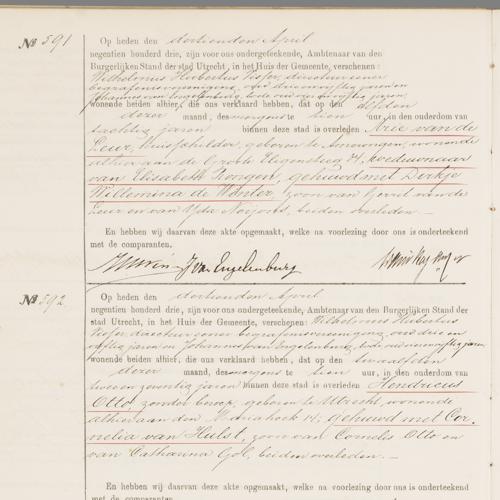 No 591
Op heden den dertienden April
negentien honderd drie, zijn voor ons ondergeteekende, Ambtenaar van den
Burgerlijken Stand der stad Utrecht, in het Huis der Gemeente, verschenen:
Wilhelmus Hubertus Visser, directeur eener
begrafenisvereeniging, oud drie en vijftig jaren en
Johannes van Engelenburg, bode, oud jaren,
wonende beiden alhier, die ons verklaard hebben, dat op den elfden
dezer maand, des morgens te tien uur, in den ouderdom van
tachtig jaren binnen deze stad is overleden Arie van de
Leur, huisschilder, geboren te Amerongen, wonende
alhier aan de Groote Eligenstraat 34, weduwnaar
van Elisabeth Rongen, gehuwd met Dirkje
Willemina de Wonter, zoon van Gerrit van de
Leur en van Yda beiden overleden.
En hebben wij daarvan deze akte opgemaakt, welke na voorlezing door ons is onderteekend
met de comparanten.
J van Engelenburg
No 592
Op heden den dertienden April
negentien honderd drie, zijn voor ons ondergeteekende, Ambtenaar van den Burgerlijken Stand der
stad Utrecht, in het Huis der Gemeente, verschenen: Wilhelmus Hubertus
Visser, directeur eener begrafenisvereeniging, oud drie en
vijftig jaren en Johannes van Engelenburg, bode, oud jaren,
wonende beiden alhier, die ons verklaard hebben, dat op den twaalfden
dezer maand, des morgens te tien uur, in den ouderdom van
twee en zeventig jaren binnen deze stad is overleden Hendricus
Otto, zonder beroep, geboren te Utrecht, wonende
alhier aan den Mariahoek 14, gehuwd met Cor-
nelia van Hulst, zoon van Cornelis Otto en
van Catharina Gol, beiden overleden.
En hebben wij daarvan deze akte opgemaakt, welke na voorlezing door ons is onderteekend
met de comparanten.